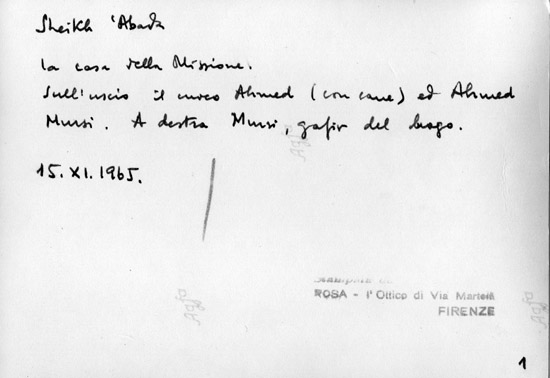 Sheikh 'Abada
la casa della Missione.
Sull'uscio il cuoco Ahmed (con cane) ed Ahmed
Mursi. A destra Mursi, gafir del luogo.
15.XI.1965.
Agfa
ROSA - l'Ottico di Via Martelli
FIRENZE
Agfa
Agfa
1